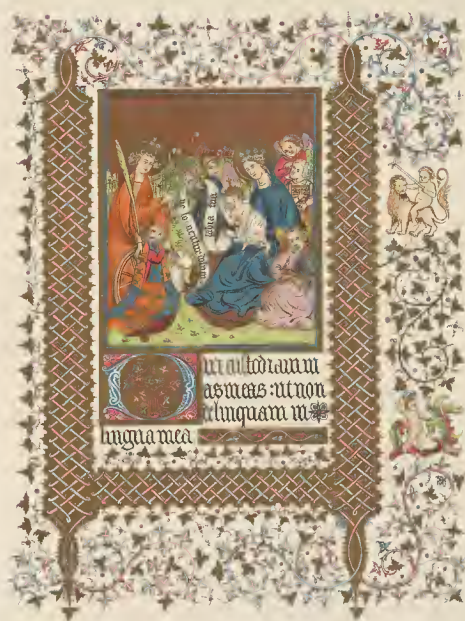 Dixi custodiam vi
as meas : ut non
delinquam in
lingua mea